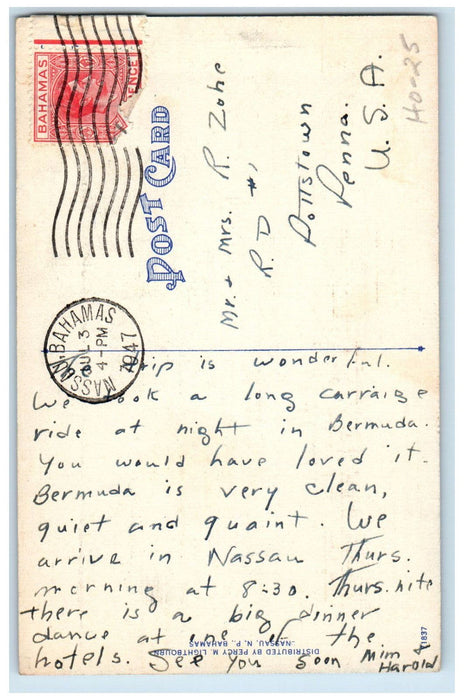 BAHAMAS
PENCE
HO-25
POST CARD
NASSAU, BAHAMAS
JUL 3
4-PM
1947
Mr. & Mrs. R. Zohe
R. D #1
Pottstown
Penna.
U. S. A.
trip is wonderful.
We took a long carraige
ride at night in Bermuda.
You would have loved it.
Bermuda is very clean,
quiet and quaint. We
arrive in Nassau Thurs.
morning at 8:30. Thurs. nite
there is a big dinner
dance at one of the
hotels. See you soon Mim &
Harold
DISTRIBUTED BY PERCY M. LIGHTBOURN
-NASSAU, N. P. BAHAMAS